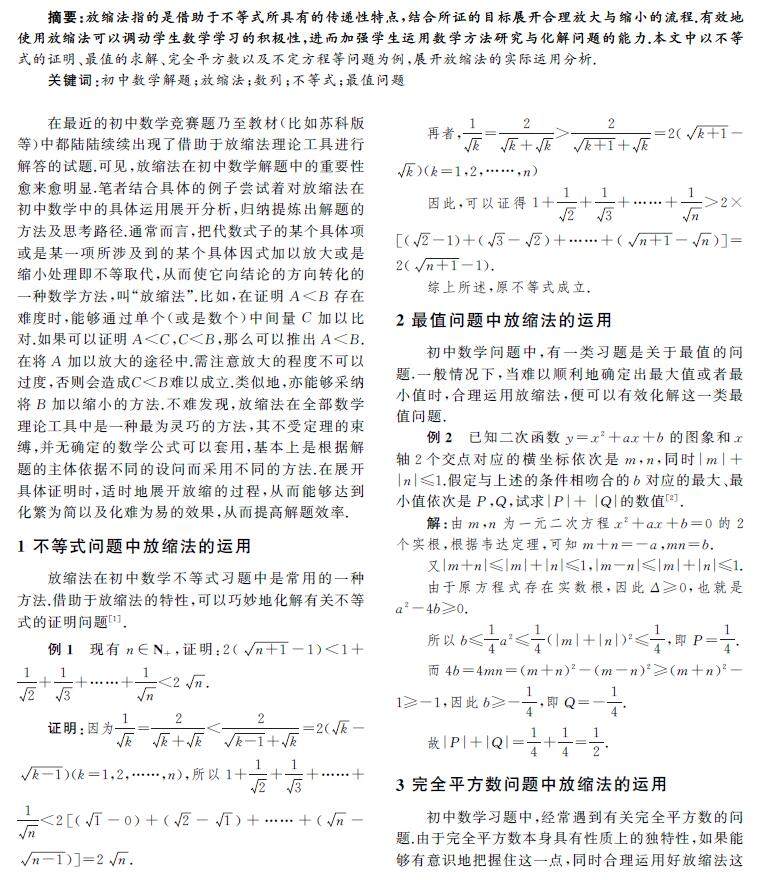 摘要:放缩法指的是借助于不等式所具有的传递性特点,结合所证的目标展开合理放大与缩小的流程.有效地
使用放缩法可以调动学生数学学习的积极性,进而加强学生运用数学方法研究与化解问题的能力.本文中以不等
式的证明、最值的求解、完全平方数以及不定方程等问题为例,展开放缩法的实际运用分析.
关键词:初中数学解题;放缩法;数列;不等式;最值问题
在最近的初中数学竞赛题乃至教材(比如苏科版
等)中都陆陆续续出现了借助于放缩法理论工具进行
解答的试题.可见,放缩法在初中数学解题中的重要性
愈来愈明显.笔者结合具体的例子尝试着对放缩法在
初中数学中的具体运用展开分析,归纳提炼出解题的
方法及思考路径.通常而言,把代数式子的某个具体项
或是某一项所涉及到的某个具体因式加以放大或是
缩小处理即不等取代,从而使它向结论的方向转化的
一种数学方法,叫“放缩法”.比如,在证明 A<B 存在
难度时,能够通过单个(或是数个)中间量 C 加以比
对.如果可以证明 A<C,C<B,那么可以推出 A<B.
在将 A 加以放大的途径中.需注意放大的程度不可以
过度,否则会造成C<B难以成立.类似地,亦能够采纳
将 B 加以缩小的方法.不难发现,放缩法在全部数学
理论工具中是一种最为灵巧的方法,其不受定理的束
缚,并无确定的数学公式可以套用,基本上是根据解
题的主体依据不同的设问而采用不同的方法.在展开
具体证明时,适时地展开放缩的过程,从而能够达到
化繁为简以及化难为易的效果,从而提高解题效率.
1 不等式问题中放缩法的运用
放缩法在初中数学不等式习题中是常用的一种
方法.借助于放缩法的特性,可以巧妙地化解有关不等
式的证明问题[1].
例 1 现有 n∈N₊,证明:2(√(n+1)-1)<1+
1/√2+1/√3+……+1/√n<2√n.
证明:因为1/√k=2/(√k+√k)<2/(√(k-1)+√k)=2(√k-
√(k-1))(k=1,2,……,n),所以 1+1/√2+1/√3+……+
1/√n<2[(√1-0)+(√2-√1)+……+(√n-
√(n-1))]=2√n.
再者,1/√k=2/(√k+√k)>2/(√(k+1)+√k)=2(√(k+1)-
√k)(k=1,2,……,n)
因此,可以证得 1+1/√2+1/√3+……+1/√n>2×
[(√2-1)+(√3-√2)+……+(√(n+1)-√n)]=
2(√(n+1)-1).
综上所述,原不等式成立.
2 最值问题中放缩法的运用
初中数学问题中,有一类习题是关于最值的问
题.一般情况下,当难以顺利地确定出最大值或者最
小值时,合理运用放缩法,便可以有效化解这一类最
值问题.
例 2 已知二次函数 y=x²+ax+b 的图象和 x
轴 2 个交点对应的横坐标依次是 m,n,同时|m|+
|n|≤1.假定与上述的条件相吻合的 b 对应的最大、最
小值依次是 P,Q,试求|P|+|Q|的数值[2].
解:由 m,n 为一元二次方程 x²+ax+b=0 的 2
个实根,根据韦达定理,可知 m+n=-a,mn=b.
又|m+n|≤|m|+|n|≤1,|m-n|≤|m|+|n|≤1.
由于原方程式存在实数根,因此 Δ≥0,也就是
a²-4b≥0.
所以 b≤1/4a²≤1/4(|m|+|n|)²≤1/4,即 P=1/4.
而 4b=4mn=(m+n)²-(m-n)²≥(m+n)²-
1≥-1,因此 b≥-1/4,即 Q=-1/4.
故|P|+|Q|=1/4+1/4=1/2.
3 完全平方数问题中放缩法的运用
初中数学习题中,经常遇到有关完全平方数的问
题.由于完全平方数本身具有性质上的独特性,如果能
够有意识地把握住这一点,同时合理运用好放缩法这